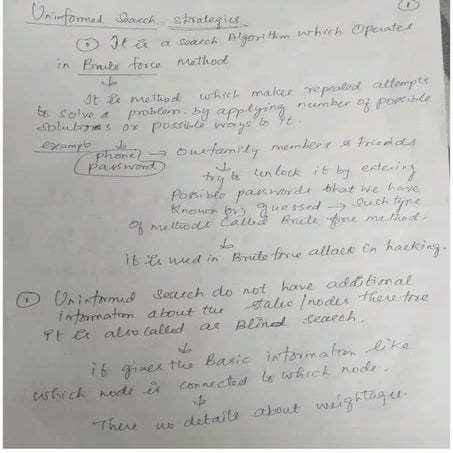 ①
Uninformed Search Strategies
⊙ It is a search Algorithm which Operates
in Brute force Method
↓
It is method which makes repeated attempts
to solve a problem. by applying number of possible
solutions or possible ways to it.
example ↓
phone password → Our family members & Friends
↓
try to unlock it by entering
Possible passwords that we have
known (or) guessed → Such type
of methods called Brute-force method.
↓
it is used in Brute force attack in hacking.
① Uninformed Search do not have additional
information about the states/nodes therefore
it is also called as Blind search.
↓
it gives the Basic information like
which node is connected to which node.
↓
There no details about weightague.